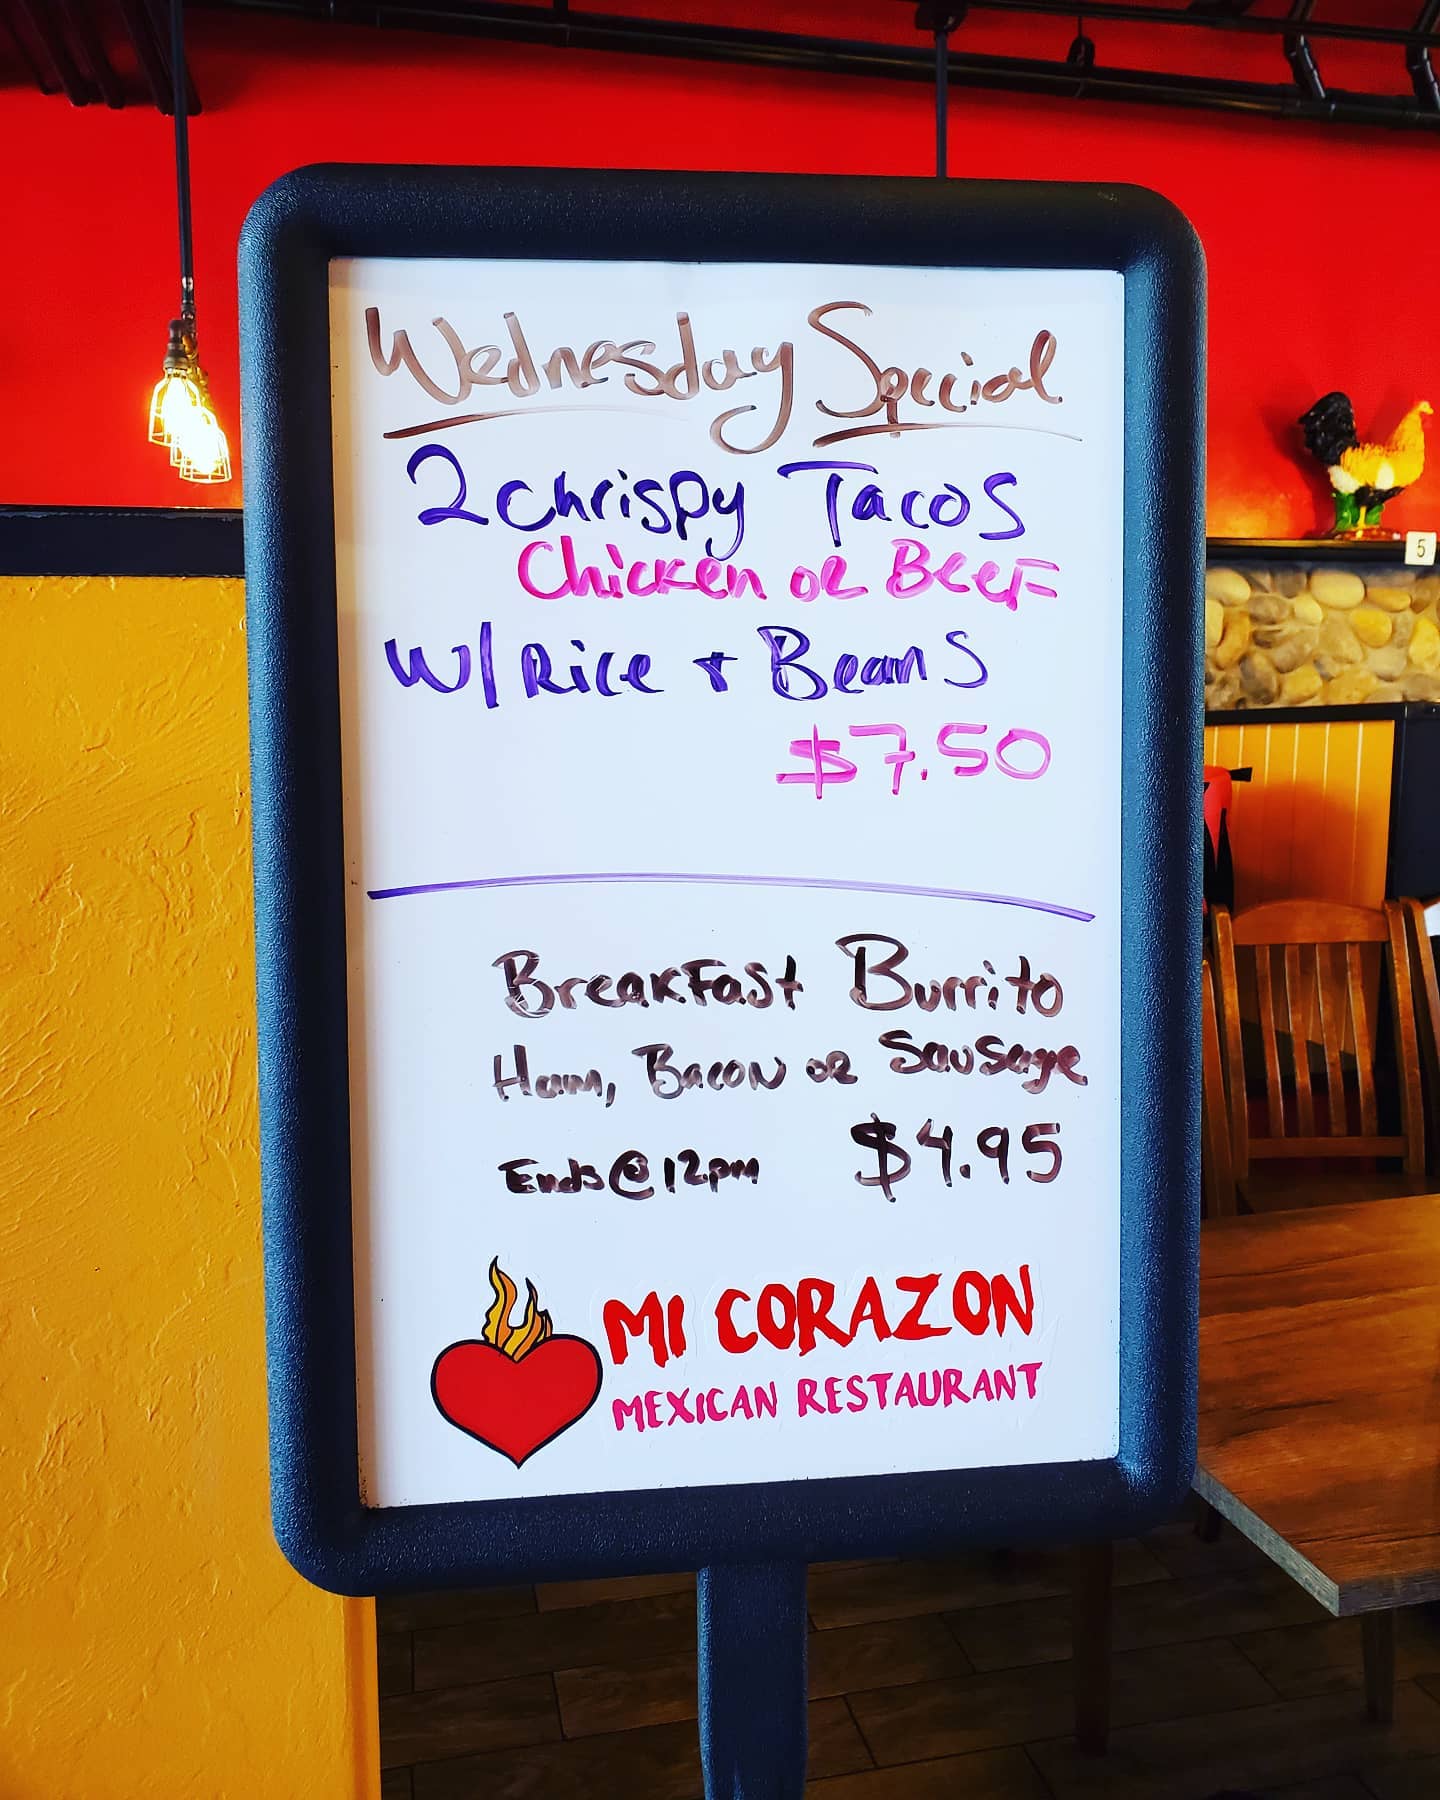 Wednesday Special
2 Chrispy Tacos
Chicken or Beef
W/ Rice + Beans
$7.50
Breakfast Burrito
Ham, Bacon or Sausage
Ends @ 12pm $4.95
MI CORAZON
MEXICAN RESTAURANT
5